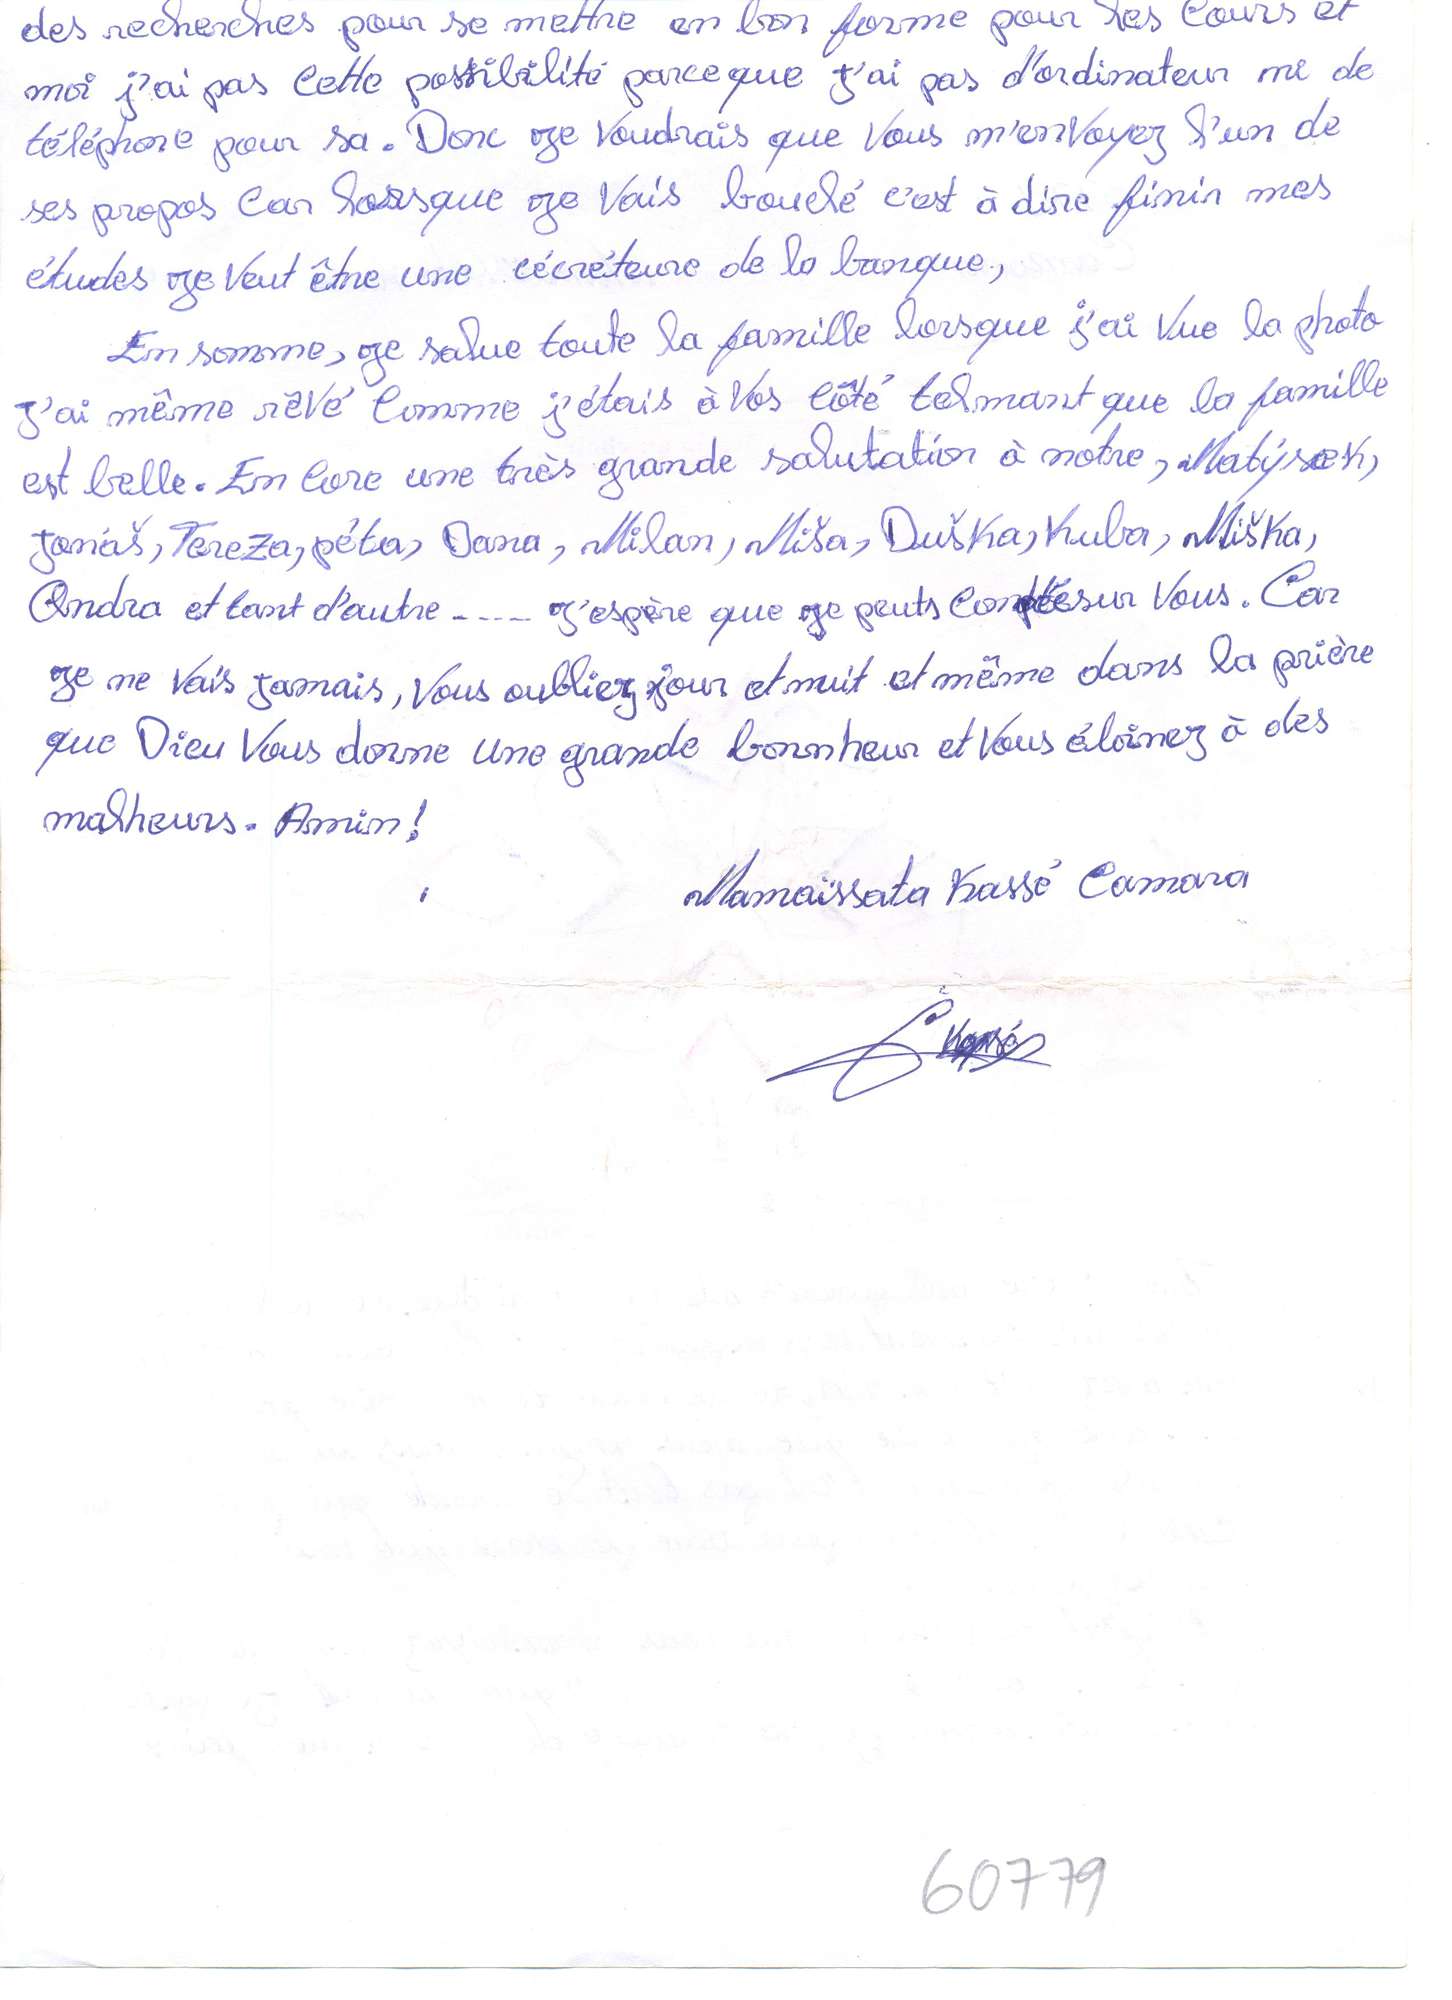 des recherches pour se mettre en bon forme pour les cours et
moi j'ai pas cette possibilité parceque j'ai pas d'ordinateur ni de
téléphone pour sa. Donc je voudrais que vous m'envoyez l'un de
ses propos car lorsque je vais bouclé c'est à dire finir mes
études je veut être une cécréteure de la banque,
En somme, je salue toute la famille lorsque j'ai vue la photo
j'ai même rêvé comme j'étais à vos côté telmant que la famille
est belle. En core une très grande salutation à notre, Matýsek,
Jonáš, Tereza, péta, Dana, Milan, Miša, Duška, Kuba, Miška,
Ondra et tant d'autre ----- j'espère que je peuts sur vous. Car
je ne vais jamais, vous oubliez jour et nuit et même dans la prière
que Dieu vous donne une grande bonnheur et vous éloinez à des
malheurs. Amin!
Mamaïssata Kassé Camara
Kassé
60779